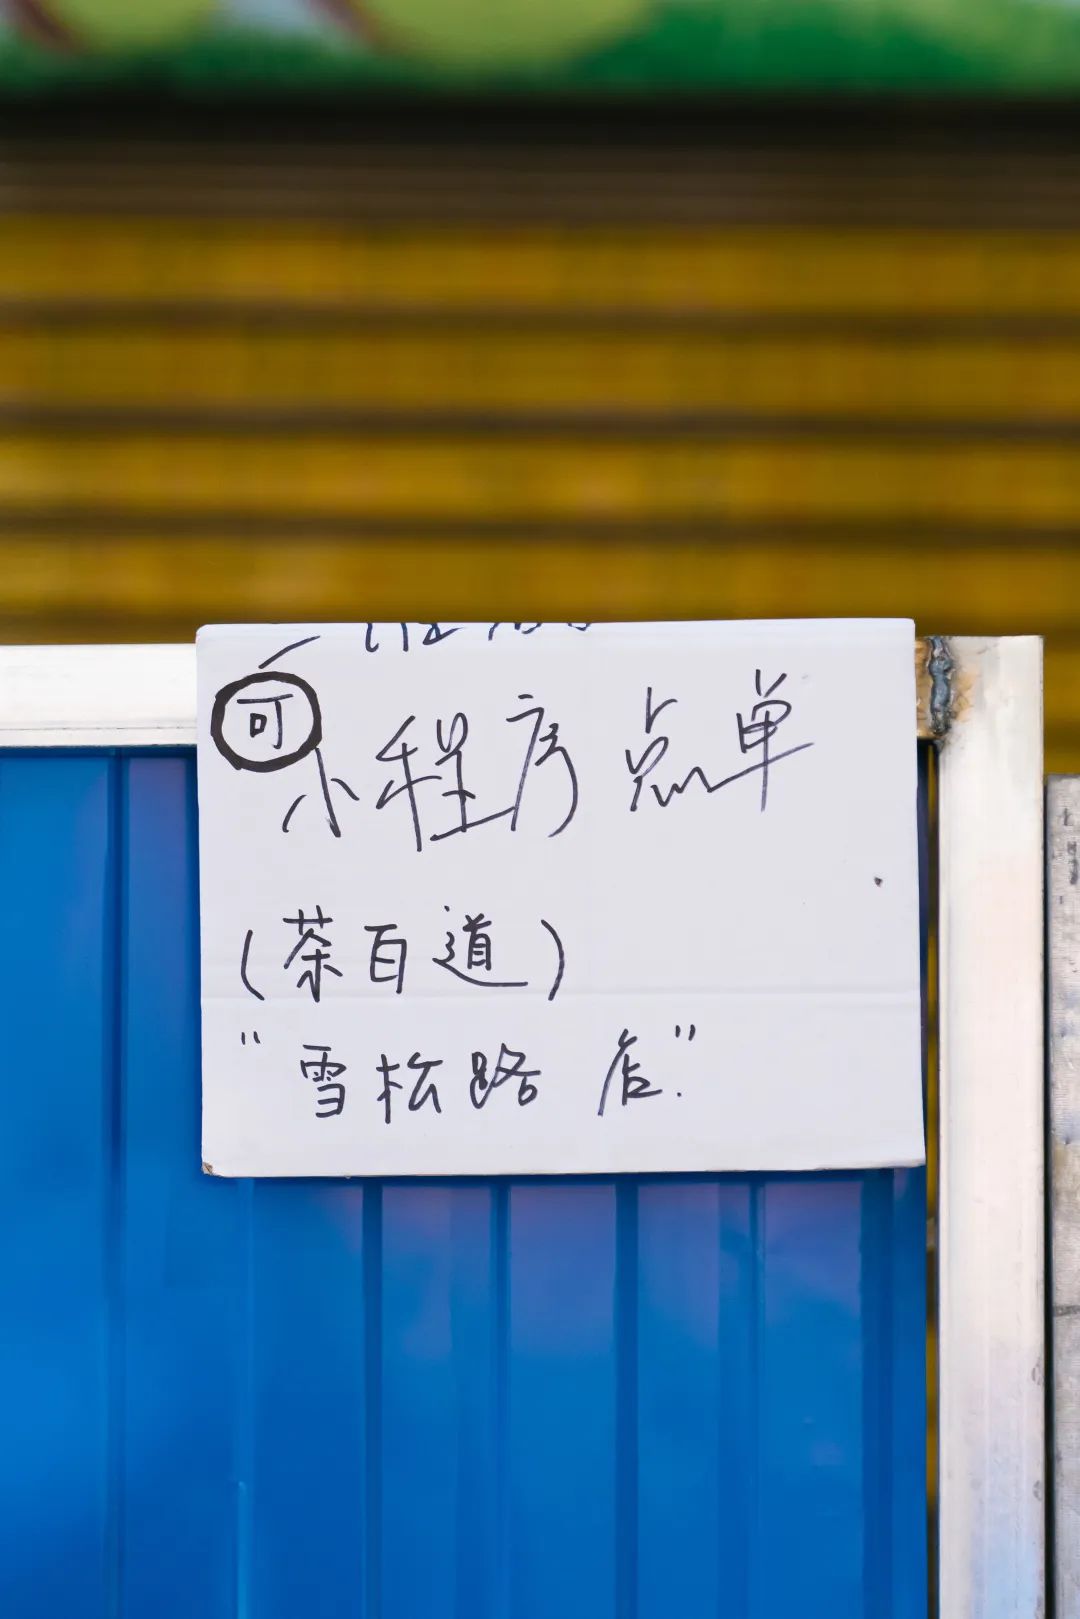 可
小程序点单
(茶百道)
"雪松路 店."